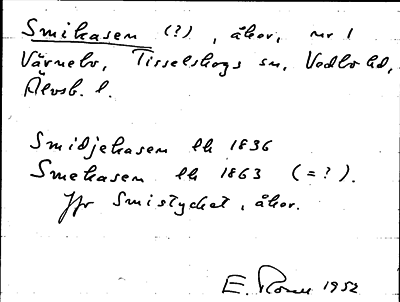 Smikasen (?), åkor, nr 1
Värnebo, Tisselskogs sn, Vedbo hd,
Älvsb. l.
Smidjekasen lh 1836
Smekasen lh 1863 (=?).
Jfr Smistycket, åkor.
E. 1952